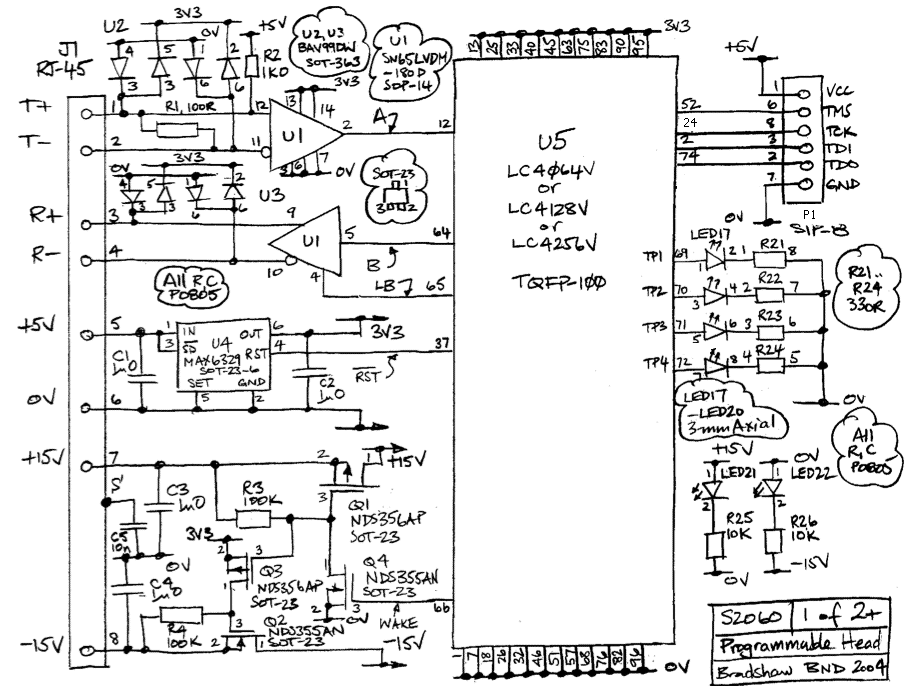 U2
3V3
J1
RJ-45
0V
+5V
4
5
1
2
3
3
6
6
R2
1K0
U2, U3
BAV99DW
SOT-363
U1
SN65LVDM
-180D
SOP-14
3V3
T+
1
R1, 100R
12
13
14
U1
2
A
12
T-
2
11
3
6
7
0V
3V3
0V
4
5
1
2
3
3
6
6
U3
SOT-23
1
3
2
R+
3
9
U1
5
64
B
R-
4
10
4
LB
65
All R,C
P0805
+5V
5
1
3
IN
OUT
SD
U4
MAX6329
SOT-23-6
RST
SET
GND
6
4
5
2
3V3
37
RST
C1
1u0
C2
1u0
0V
6
+15V
7
2
1
+15V
3
S
C3
1u0
R3
100K
Q1
NDS356AP
SOT-23
C5
10n
3V3
2
3
1
Q3
NDS356AP
SOT-23
Q4
NDS355AN
SOT-23
1
3
2
0V
66
WAKE
0V
C4
1u0
R4
100K
3
2
1
Q2
NDS355AN
SOT-23
-15V
8
-15V
13 25 33 40 45 63 75 83 90 95
3V3
U5
LC4064V
or
LC4128V
or
LC4256V
TQFP-100
1 7 18 26 32 46 51 57 68 76 82 96
0V
+5V
1
VCC
52
6
TMS
24
8
TCK
2
3
TDI
74
2
TDO
7
GND
0V
P1
SIP-8
LED17
TP1
69
1
2
1
R21
8
TP2
70
3
4
2
R22
7
TP3
71
5
6
3
R23
6
TP4
72
7
8
4
R24
5
R21..
R24
330R
0V
LED17
-LED20
3-mm Axial
All
R,C
P0805
+15V
1
LED21
2
R25
10K
0V
0V
1
LED22
2
R26
10K
-15V
S2060
1 of 2+
Programmable Head
Bradshaw BND 2004